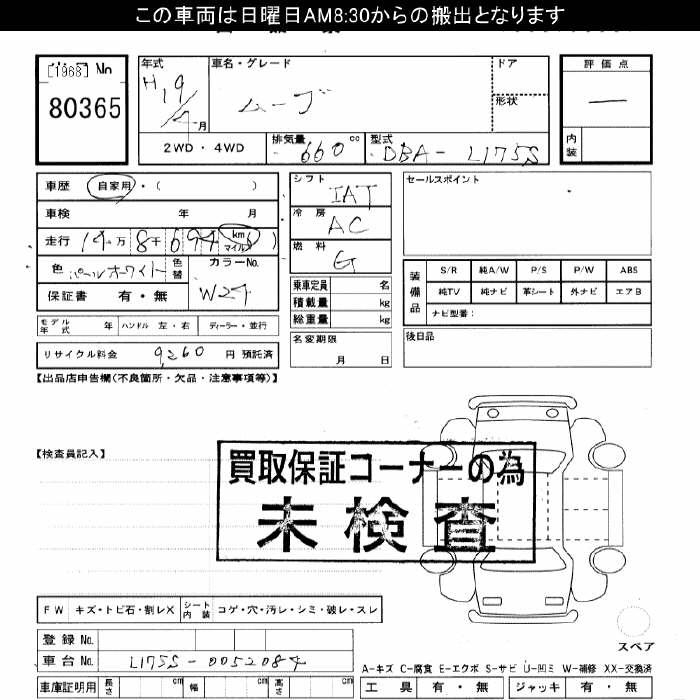 この車両は日曜日AM8:30からの搬出となります
[1968] No
80365
年式
H19/4月
車名・グレード
ムーブ
ドア
形状
評価点
—
内装
2WD・4WD
排気量 660 cc
型式 DBA- L175S
車歴 自家用・( )
車検 年 月
走行 14万8千694 km マイル( )
色 パールホワイト 色替
カラーNo.
W24
保証書 有・無
シフト
IAT
冷房
AC
燃料
G
乗車定員 名
積載量 kg
総重量 kg
セールスポイント
装備品
S/R 純A/W P/S P/W ABS
純TV 純ナビ 革シート 外ナビ エアB
ナビ型番:
モデル年式 年 ハンドル 左・右 ディーラー・並行
リサイクル料金 9,260 円 預託済
名変期限
月 日
後日品
【出品店申告欄(不良箇所・欠品・注意事項等)】
【検査員記入】
買取保証コーナーの為
未検査
FW キズ・トビ石・割レX シート内装 コゲ・穴・汚レ・シミ・破レ・スレ
スペア
登録No.
車台No. L175S-0052084
A-キズ C-腐食 E-エクボ S-サビ U-凹ミ W-補修 XX-交換済
車庫証明用 長さ cm 幅 cm 高さ cm
工具 有・無 ジャッキ 有・無